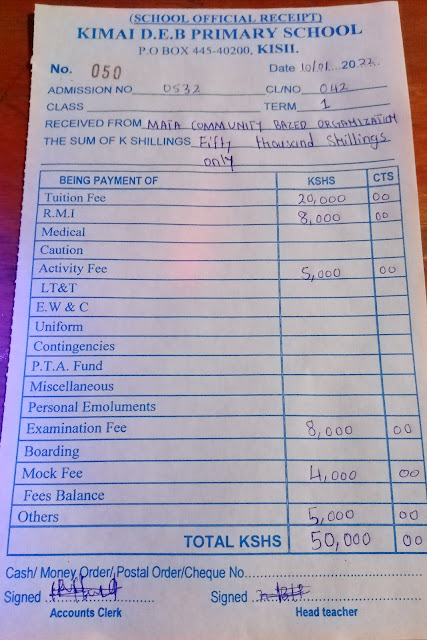 (SCHOOL OFFICIAL RECEIPT)
KIMAI D.E.B PRIMARY SCHOOL
P.O BOX 445-40200, KISII.
No. 050 Date 10/01...2023.
ADMISSION NO 0532 CL/NO 042
CLASS TERM 1
RECEIVED FROM MATA COMMUNITY BAZED ORGANIZATION
THE SUM OF K SHILLINGS Fifty thousand Shillings
only
BEING PAYMENT OF KSHS CTS
Tuition Fee 20,000 00
R.M.I 8,000 00
Medical
Caution
Activity Fee 5,000 00
LT&T
E.W & C
Uniform
Contingencies
P.T.A. Fund
Miscellaneous
Personal Emoluments
Examination Fee 8,000 00
Boarding
Mock Fee 4,000 00
Fees Balance
Others 5,000 00
TOTAL KSHS 50,000 00
Cash/ Money Order/ Postal Order/Cheque No.
Signed Signed
Accounts Clerk Head teacher